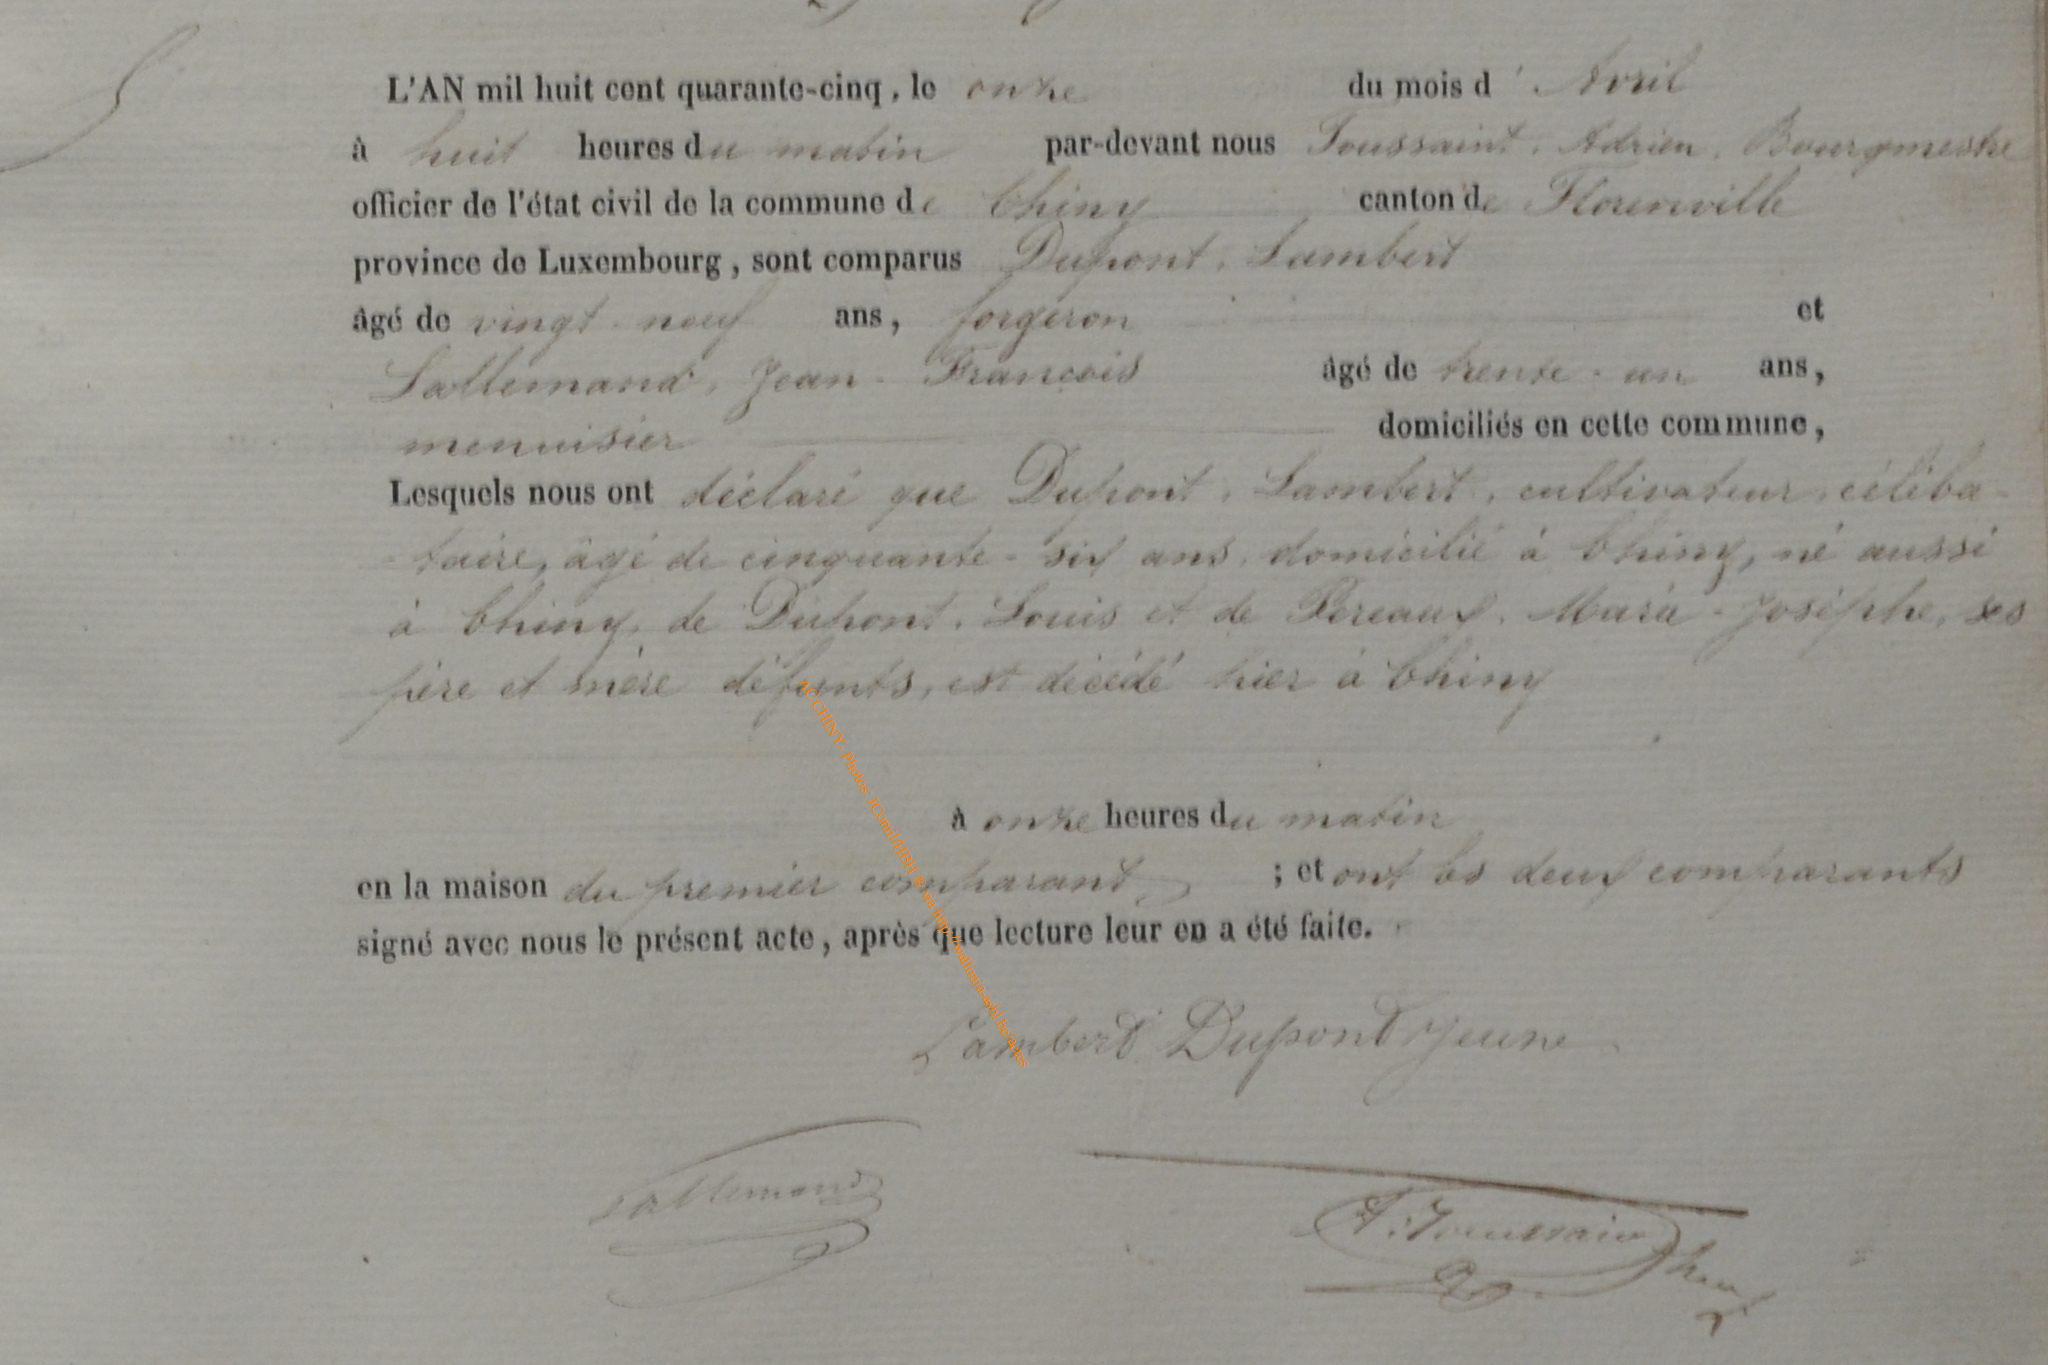 L'AN mil huit cent quarante-cinq, le onze du mois d'Avril
à huit heures du matin par-devant nous Toussaint, Adrien, Bourgmestre
officier de l'état civil de la commune de Chiny canton de Florenville
province de Luxembourg, sont comparus Dupont, Lambert
âgé de vingt-neuf ans, forgeron et
Lallemand, Jean-François âgé de trente-un ans,
menuisier domiciliés en cette commune,
Lesquels nous ont déclaré que Dupont, Lambert, cultivateur, céliba-
-taire, âgé de cinquante-six ans, domicilié à Chiny, né aussi
à Chiny, de Dupont, Louis et de Pereaux, Marie-Josèphe, ses
père et mère défunts, est décédé hier à Chiny
à onze heures du matin
en la maison du premier comparant ; et ont les deux comparants
signé avec nous le présent acte, après que lecture leur en a été faite.
Lambert Dupont jeune
Lallemand
A. Toussaint
AC CHINY. Photos